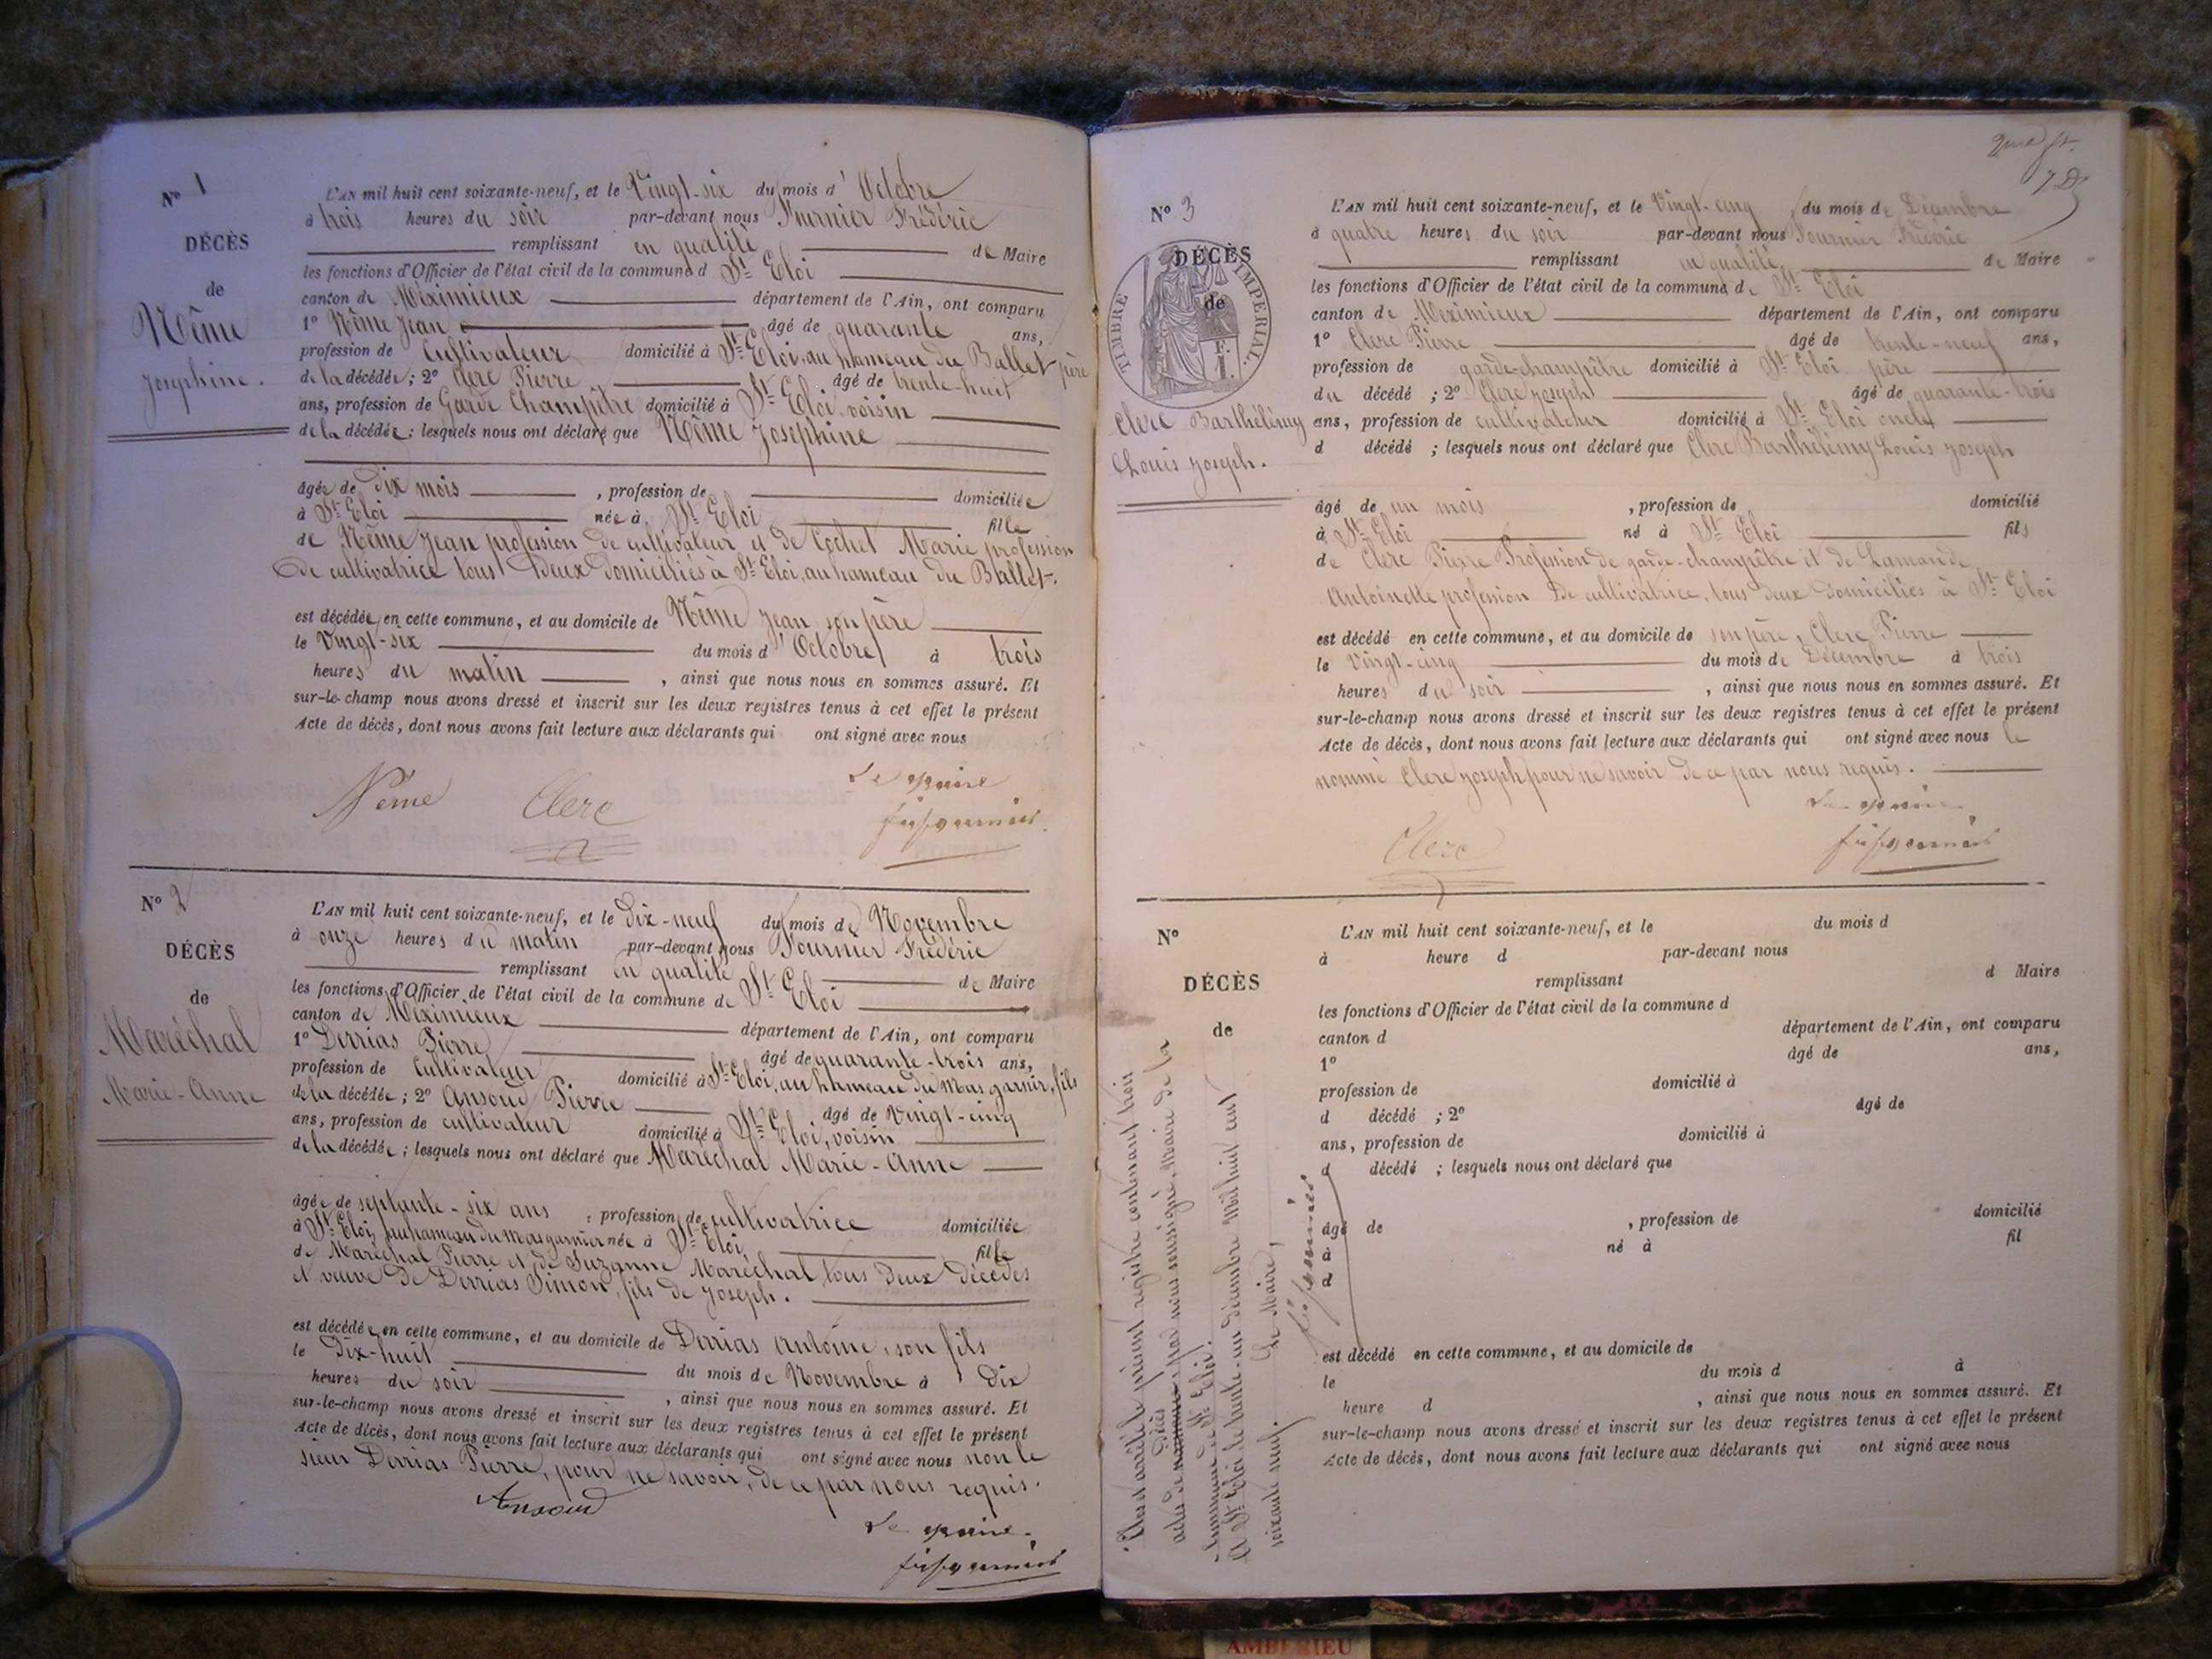 N° 1
DÉCÈS
de
Nême
Josephine.
L'AN mil huit cent soixante-neuf, et le Vingt-six du mois d'Octobre
à trois heures du soir par-devant nous Fournier Frédéric
remplissant en qualité de Maire
les fonctions d'Officier de l'état civil de la commune d St Eloi
canton de Méximieux département de l'Ain, ont comparu
1° Nême Jean âgé de quarante ans,
profession de Cultivateur domicilié à St Eloi, au hameau du Ballet père
de la décédée; 2° Clerc Pierre âgé de trente-huit
ans, profession de Garde Champêtre domicilié à St Eloi, voisin
de la décédée; lesquels nous ont déclaré que Nême Josephine
âgée de dix mois , profession de domiciliée
à St Eloi née à St Eloi fille
de Nême Jean profession de cultivateur et de Cochet Marie profession
de cultivatrice tous deux domiciliés à St Eloi, au hameau du Ballet.
est décédée en cette commune, et au domicile de Nême Jean son père
le Vingt-six du mois d'Octobre à trois
heures du matin , ainsi que nous nous en sommes assuré. Et
sur-le-champ nous avons dressé et inscrit sur les deux registres tenus à cet effet le présent
Acte de décès, dont nous avons fait lecture aux déclarants qui ont signé avec nous
Nême Clerc Le maire
N° 2
DÉCÈS
de
Maréchal
Marie-Anne
L'AN mil huit cent soixante-neuf, et le Dix-neuf du mois de Novembre
à onze heures du matin par-devant nous Fournier Frédéric
remplissant en qualité de Maire
les fonctions d'Officier de l'état civil de la commune de St Eloi
canton de Méximieux département de l'Ain, ont comparu
1° Derrias Pierre âgé de quarante-trois ans,
profession de Cultivateur domicilié à St Eloi, au hameau du Mas garnier, fils
de la décédée; 2° Ansoud Pierre âgé de Vingt-cinq
ans, profession de cultivateur domicilié à St Eloi, voisin
de la décédée; lesquels nous ont déclaré que Maréchal Marie-Anne
âgée de septante-six ans , profession de cultivatrice domiciliée
à St Eloi, au hameau du Mas garnier née à St Eloi, fille
de Maréchal Pierre et de Suzanne Maréchal, tous deux décédés
et veuve de Derrias Simon, fils de Joseph.
est décédée en cette commune, et au domicile de Derrias Antoine, son fils
le Dix-huit du mois de Novembre à Dix
heures du soir , ainsi que nous nous en sommes assuré. Et
sur-le-champ nous avons dressé et inscrit sur les deux registres tenus à cet effet le présent
Acte de décès, dont nous avons fait lecture aux déclarants qui ont signé avec nous non le
sieur Derrias Pierre, pour ne savoir, de ce par nous requis.
Ansoud
Le maire
N° 3
DÉCÈS
de
TIMBRE IMPÉRIAL.
Clerc Barthélémy
Louis Joseph.
L'AN mil huit cent soixante-neuf, et le Vingt-cinq du mois de Décembre
à quatre heures du soir par-devant nous Fournier Frédéric
remplissant en qualité de Maire
les fonctions d'Officier de l'état civil de la commune de St Eloi
canton de Méximieux département de l'Ain, ont comparu
1° Clerc Pierre âgé de trente-neuf ans,
profession de garde-champêtre domicilié à St Eloi père
du décédé ; 2° Clerc Joseph âgé de quarante-trois
ans, profession de cultivateur domicilié à St Eloi oncle
d décédé ; lesquels nous ont déclaré que Clerc Barthélémy Louis Joseph
âgé de un mois , profession de domicilié
à St Eloi né à St Eloi fils
de Clerc Pierre Profession de garde-champêtre et de Lamande
Antoinette profession de cultivatrice, tous deux domiciliés à St Eloi
est décédé en cette commune, et au domicile de son père, Clerc Pierre
le Vingt-cinq du mois de Décembre à trois
heures du soir , ainsi que nous nous en sommes assuré. Et
sur-le-champ nous avons dressé et inscrit sur les deux registres tenus à cet effet le présent
Acte de décès, dont nous avons fait lecture aux déclarants qui ont signé avec nous le
nommé Clerc Joseph pour ne savoir de ce par nous requis.
Le maire
Clerc
N°
DÉCÈS
de
L'AN mil huit cent soixante-neuf, et le du mois d
à heure d par-devant nous
remplissant d Maire
les fonctions d'Officier de l'état civil de la commune d
canton d département de l'Ain, ont comparu
1° âgé de ans,
profession de domicilié à
d décédé ; 2° âgé de
ans, profession de domicilié à
d décédé ; lesquels nous ont déclaré que
âgé de , profession de domicilié
à né à fil
d
est décédé en cette commune, et au domicile de
le du mois d à
heure d , ainsi que nous nous en sommes assuré. Et
sur-le-champ nous avons dressé et inscrit sur les deux registres tenus à cet effet le présent
Acte de décès, dont nous avons fait lecture aux déclarants qui ont signé avec nous
Clos et arrêté le présent registre contenant trois
actes de Décès par nous soussigné, Maire de la
commune de St Eloi.
A St Eloi le trente-un décembre mil huit cent
soixante neuf. Le Maire,
AMBERIEU